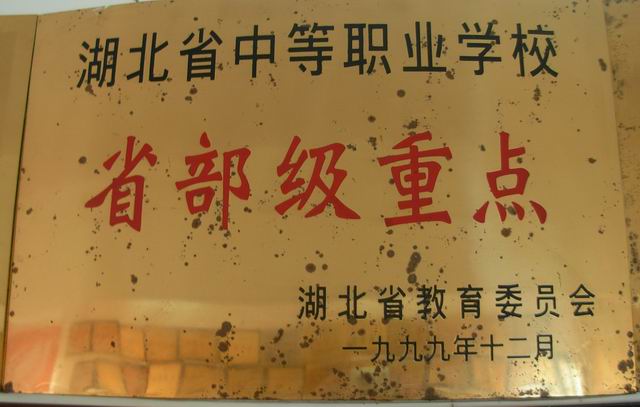 湖北省中等职业学校
省部级重点
湖北省教育委员会
一九九九年十二月